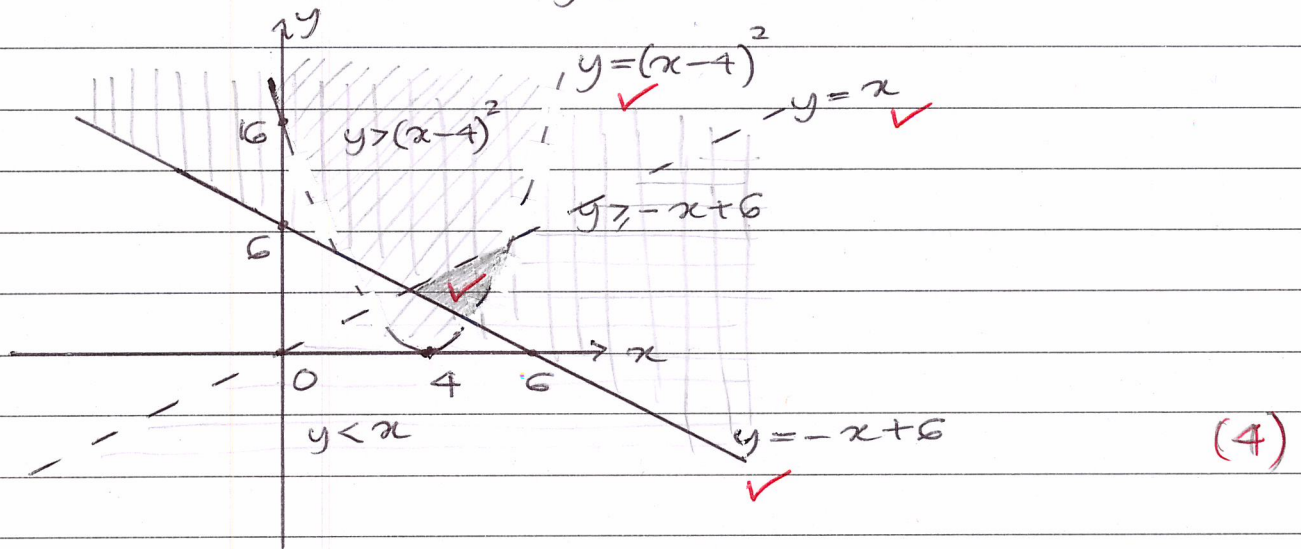 y
y=(x-4)²
y=x
16
y>(x-4)²
y≥-x+6
6
0 4 6 x
y<x
y=-x+6
(4)